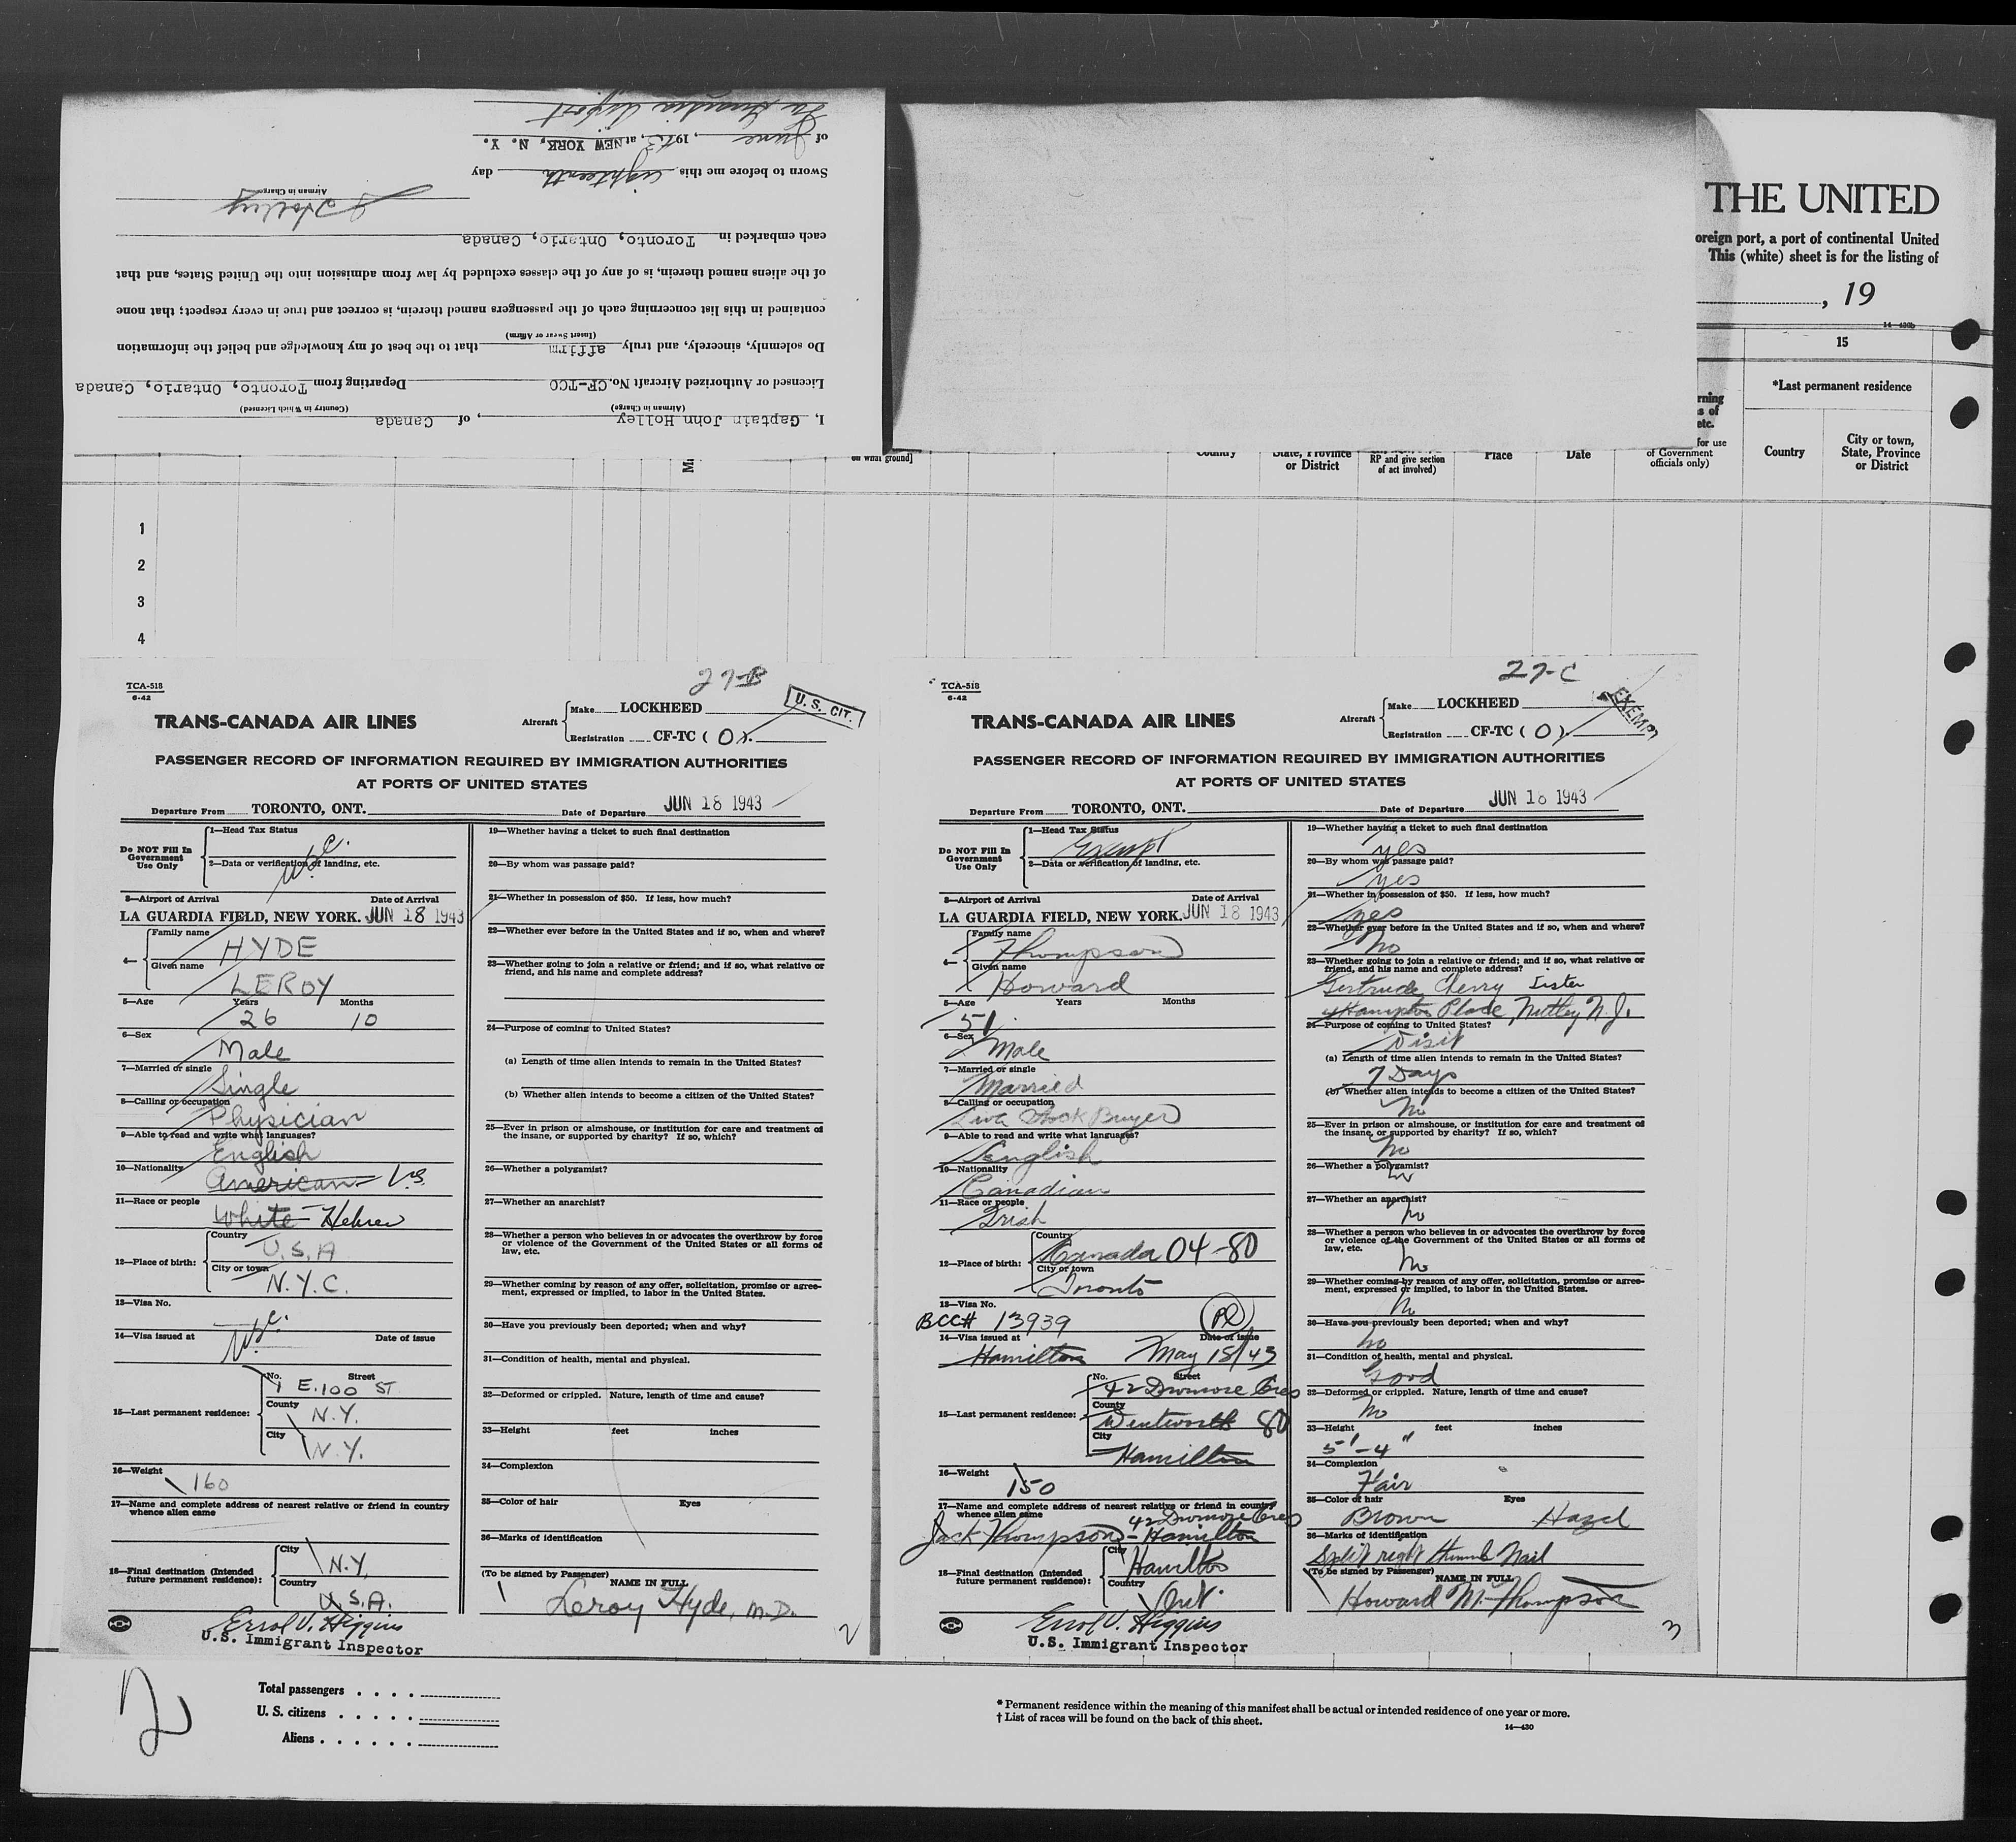 I, Captain John Holley, of Canada
(Airman in Charge) (Country in Which Licensed)
Licensed or Authorized Aircraft No. CF-TCO Departing from Toronto, Ontario, Canada
Do solemnly, sincerely, and truly affirm that to the best of my knowledge and belief the information
(Insert Swear or Affirm)
contained in this list concerning each of the passengers named therein, is correct and true in every respect; that none
of the aliens named therein, is of any of the classes excluded by law from admission into the United States, and that
each embarked in Toronto, Ontario, Canada
J Holley
Airman in Charge
Sworn to before me this eighteenth day
of June, 1943, at NEW YORK, N. Y.
La Guardia Airport
THE UNITED
oreign port, a port of continental United
This (white) sheet is for the listing of
, 19
14-430b
15
*Last permanent residence
rning
s of
etc.
for use
of Government
officials only)
Country
City or town,
State, Province
or District
on what ground]
Country
State, Province
or District
RP and give section
of act involved)
Place
Date
1
2
3
4
27-B
TCA-518
6-42
U. S. CIT.
TRANS-CANADA AIR LINES
Aircraft
Make LOCKHEED
Registration CF-TC (O).
PASSENGER RECORD OF INFORMATION REQUIRED BY IMMIGRATION AUTHORITIES
AT PORTS OF UNITED STATES
Departure From TORONTO, ONT. Date of Departure JUN 18 1943
Do NOT Fill In
Government
Use Only
1—Head Tax Status
2—Data or verification of landing, etc.
3—Airport of Arrival Date of Arrival
LA GUARDIA FIELD, NEW YORK. JUN 18 1943
4—
Family name HYDE
Given name LEROY
5—Age Years Months
26 10
6—Sex
Male
7—Married or single
Single
8—Calling or occupation
Physician
9—Able to read and write what languages?
English
10—Nationality
American U.S.
11—Race or people
White - Hebrew
12—Place of birth:
Country
U.S.A
City or town
N.Y.C.
13—Visa No.
14—Visa issued at Date of issue
15—Last permanent residence:
No. Street
1 E. 100 ST
County
N.Y.
City
N.Y.
16—Weight
160
17—Name and complete address of nearest relative or friend in country
whence alien came
18—Final destination (Intended
future permanent residence):
City
N.Y.
Country
U.S.A.
Errol V. Higgins
U.S. Immigrant Inspector
19—Whether having a ticket to such final destination
20—By whom was passage paid?
21—Whether in possession of $50. If less, how much?
22—Whether ever before in the United States and if so, when and where?
23—Whether going to join a relative or friend; and if so, what relative or
friend, and his name and complete address?
24—Purpose of coming to United States?
(a) Length of time alien intends to remain in the United States?
(b) Whether alien intends to become a citizen of the United States?
25—Ever in prison or almshouse, or institution for care and treatment of
the insane, or supported by charity? If so, which?
26—Whether a polygamist?
27—Whether an anarchist?
28—Whether a person who believes in or advocates the overthrow by force
or violence of the Government of the United States or all forms of
law, etc.
29—Whether coming by reason of any offer, solicitation, promise or agree-
ment, expressed or implied, to labor in the United States.
30—Have you previously been deported; when and why?
31—Condition of health, mental and physical.
32—Deformed or crippled. Nature, length of time and cause?
33—Height feet inches
34—Complexion
35—Color of hair Eyes
36—Marks of identification
(To be signed by Passenger)
NAME IN FULL
Leroy Hyde, M.D.
2
27-C
TCA-518
6-42
EXEMPT
TRANS-CANADA AIR LINES
Aircraft
Make LOCKHEED
Registration CF-TC (O)
PASSENGER RECORD OF INFORMATION REQUIRED BY IMMIGRATION AUTHORITIES
AT PORTS OF UNITED STATES
Departure From TORONTO, ONT. Date of Departure JUN 18 1943
Do NOT Fill In
Government
Use Only
1—Head Tax Status
Exempt
2—Data or verification of landing, etc.
3—Airport of Arrival Date of Arrival
LA GUARDIA FIELD, NEW YORK. JUN 18 1943
4—
Family name
Thompson
Given name
Howard
5—Age Years Months
51
6—Sex
Male
7—Married or single
Married
8—Calling or occupation
Live Stock Buyer
9—Able to read and write what languages?
English
10—Nationality
Canadian
11—Race or people
Irish
12—Place of birth:
Country
Canada 04-80
City or town
Toronto
13—Visa No.
BCC# 13939
14—Visa issued at Date of issue
Hamilton May 18/43
15—Last permanent residence:
No. Street
42 Dromore Cres
County
Wentworth 80
City
Hamilton
16—Weight
150
17—Name and complete address of nearest relative or friend in country
whence alien came
42 Dromore Cres
Jack Thompson - Hamilton
18—Final destination (Intended
future permanent residence):
City
Hamilton
Country
Ont.
Errol V. Higgins
U.S. Immigrant Inspector
19—Whether having a ticket to such final destination
yes
20—By whom was passage paid?
yes
21—Whether in possession of $50. If less, how much?
yes
22—Whether ever before in the United States and if so, when and where?
No
23—Whether going to join a relative or friend; and if so, what relative or
friend, and his name and complete address?
Gertrude Cherry Sister
4 Hampton Place, Nutley N.J.
24—Purpose of coming to United States?
Visit
(a) Length of time alien intends to remain in the United States?
7 Days
(b) Whether alien intends to become a citizen of the United States?
No
25—Ever in prison or almshouse, or institution for care and treatment of
the insane, or supported by charity? If so, which?
No
26—Whether a polygamist?
No
27—Whether an anarchist?
No
28—Whether a person who believes in or advocates the overthrow by force
or violence of the Government of the United States or all forms of
law, etc.
No
29—Whether coming by reason of any offer, solicitation, promise or agree-
ment, expressed or implied, to labor in the United States.
No
30—Have you previously been deported; when and why?
No
31—Condition of health, mental and physical.
Good
32—Deformed or crippled. Nature, length of time and cause?
No
33—Height feet inches
5'-4"
34—Complexion
Fair
35—Color of hair Eyes
Brown Hazel
36—Marks of identification
Split right thumb Nail
(To be signed by Passenger)
NAME IN FULL
Howard M. Thompson
3
2
Total passengers
U. S. citizens
Aliens
* Permanent residence within the meaning of this manifest shall be actual or intended residence of one year or more.
† List of races will be found on the back of this sheet.
14-430